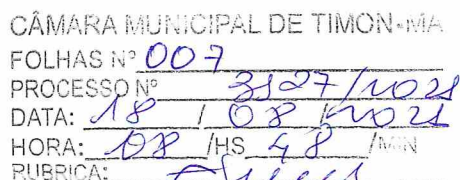 CÂMARA MUNICIPAL DE TIMON-MA
FOLHAS Nº 007
PROCESSO Nº 3127/2021
DATA: 18 / 08 / 2021
HORA: 08 /HS 48 /MIN
RUBRICA: